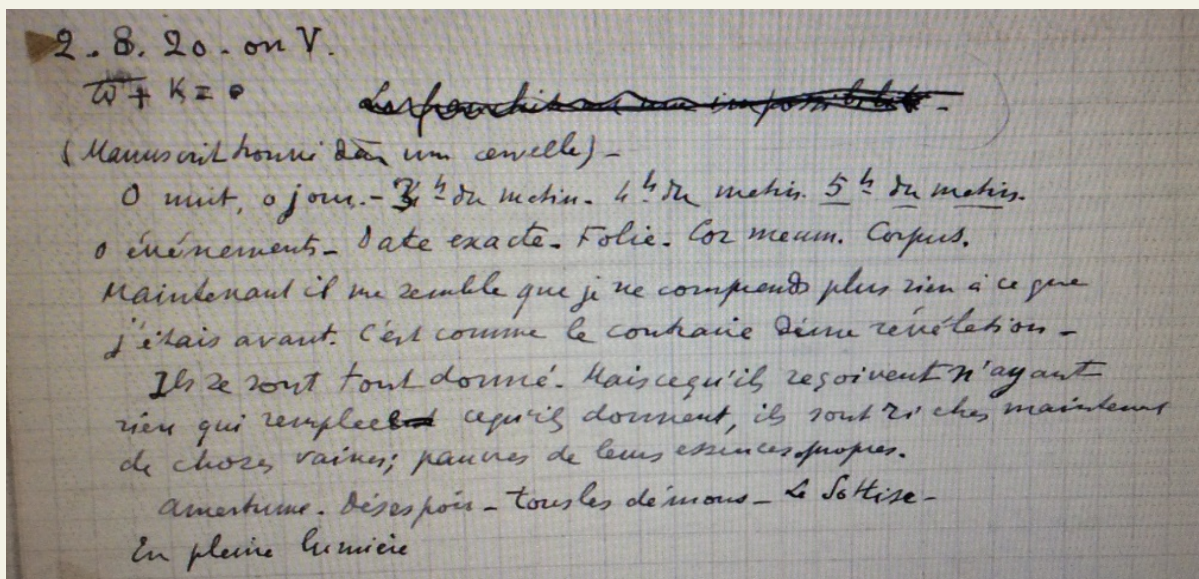 2. 8. 20 - on V.
ϖ + K = 0
Les franchir est une impossibilité -
(Manuscrit trouvé dans une cervelle) -
O nuit, o jour. - 3h du matin. 4h du matin. 5h du matin.
o événements - Date exacte. Folie. Cor meum. Corpus.
Maintenant il me semble que je ne comprends plus rien à ce que
j'étais avant. C'est comme le contraire d'une révélation -
Ils se sont tout donné. Mais ce qu'ils reçoivent n'ayant
rien qui remplace ce qu'ils donnent, ils sont riches maintenant
de choses vaines; pauvres de leurs essences propres.
Amertume. Désespoir - Tous les démons - La Sottise -
En pleine lumière